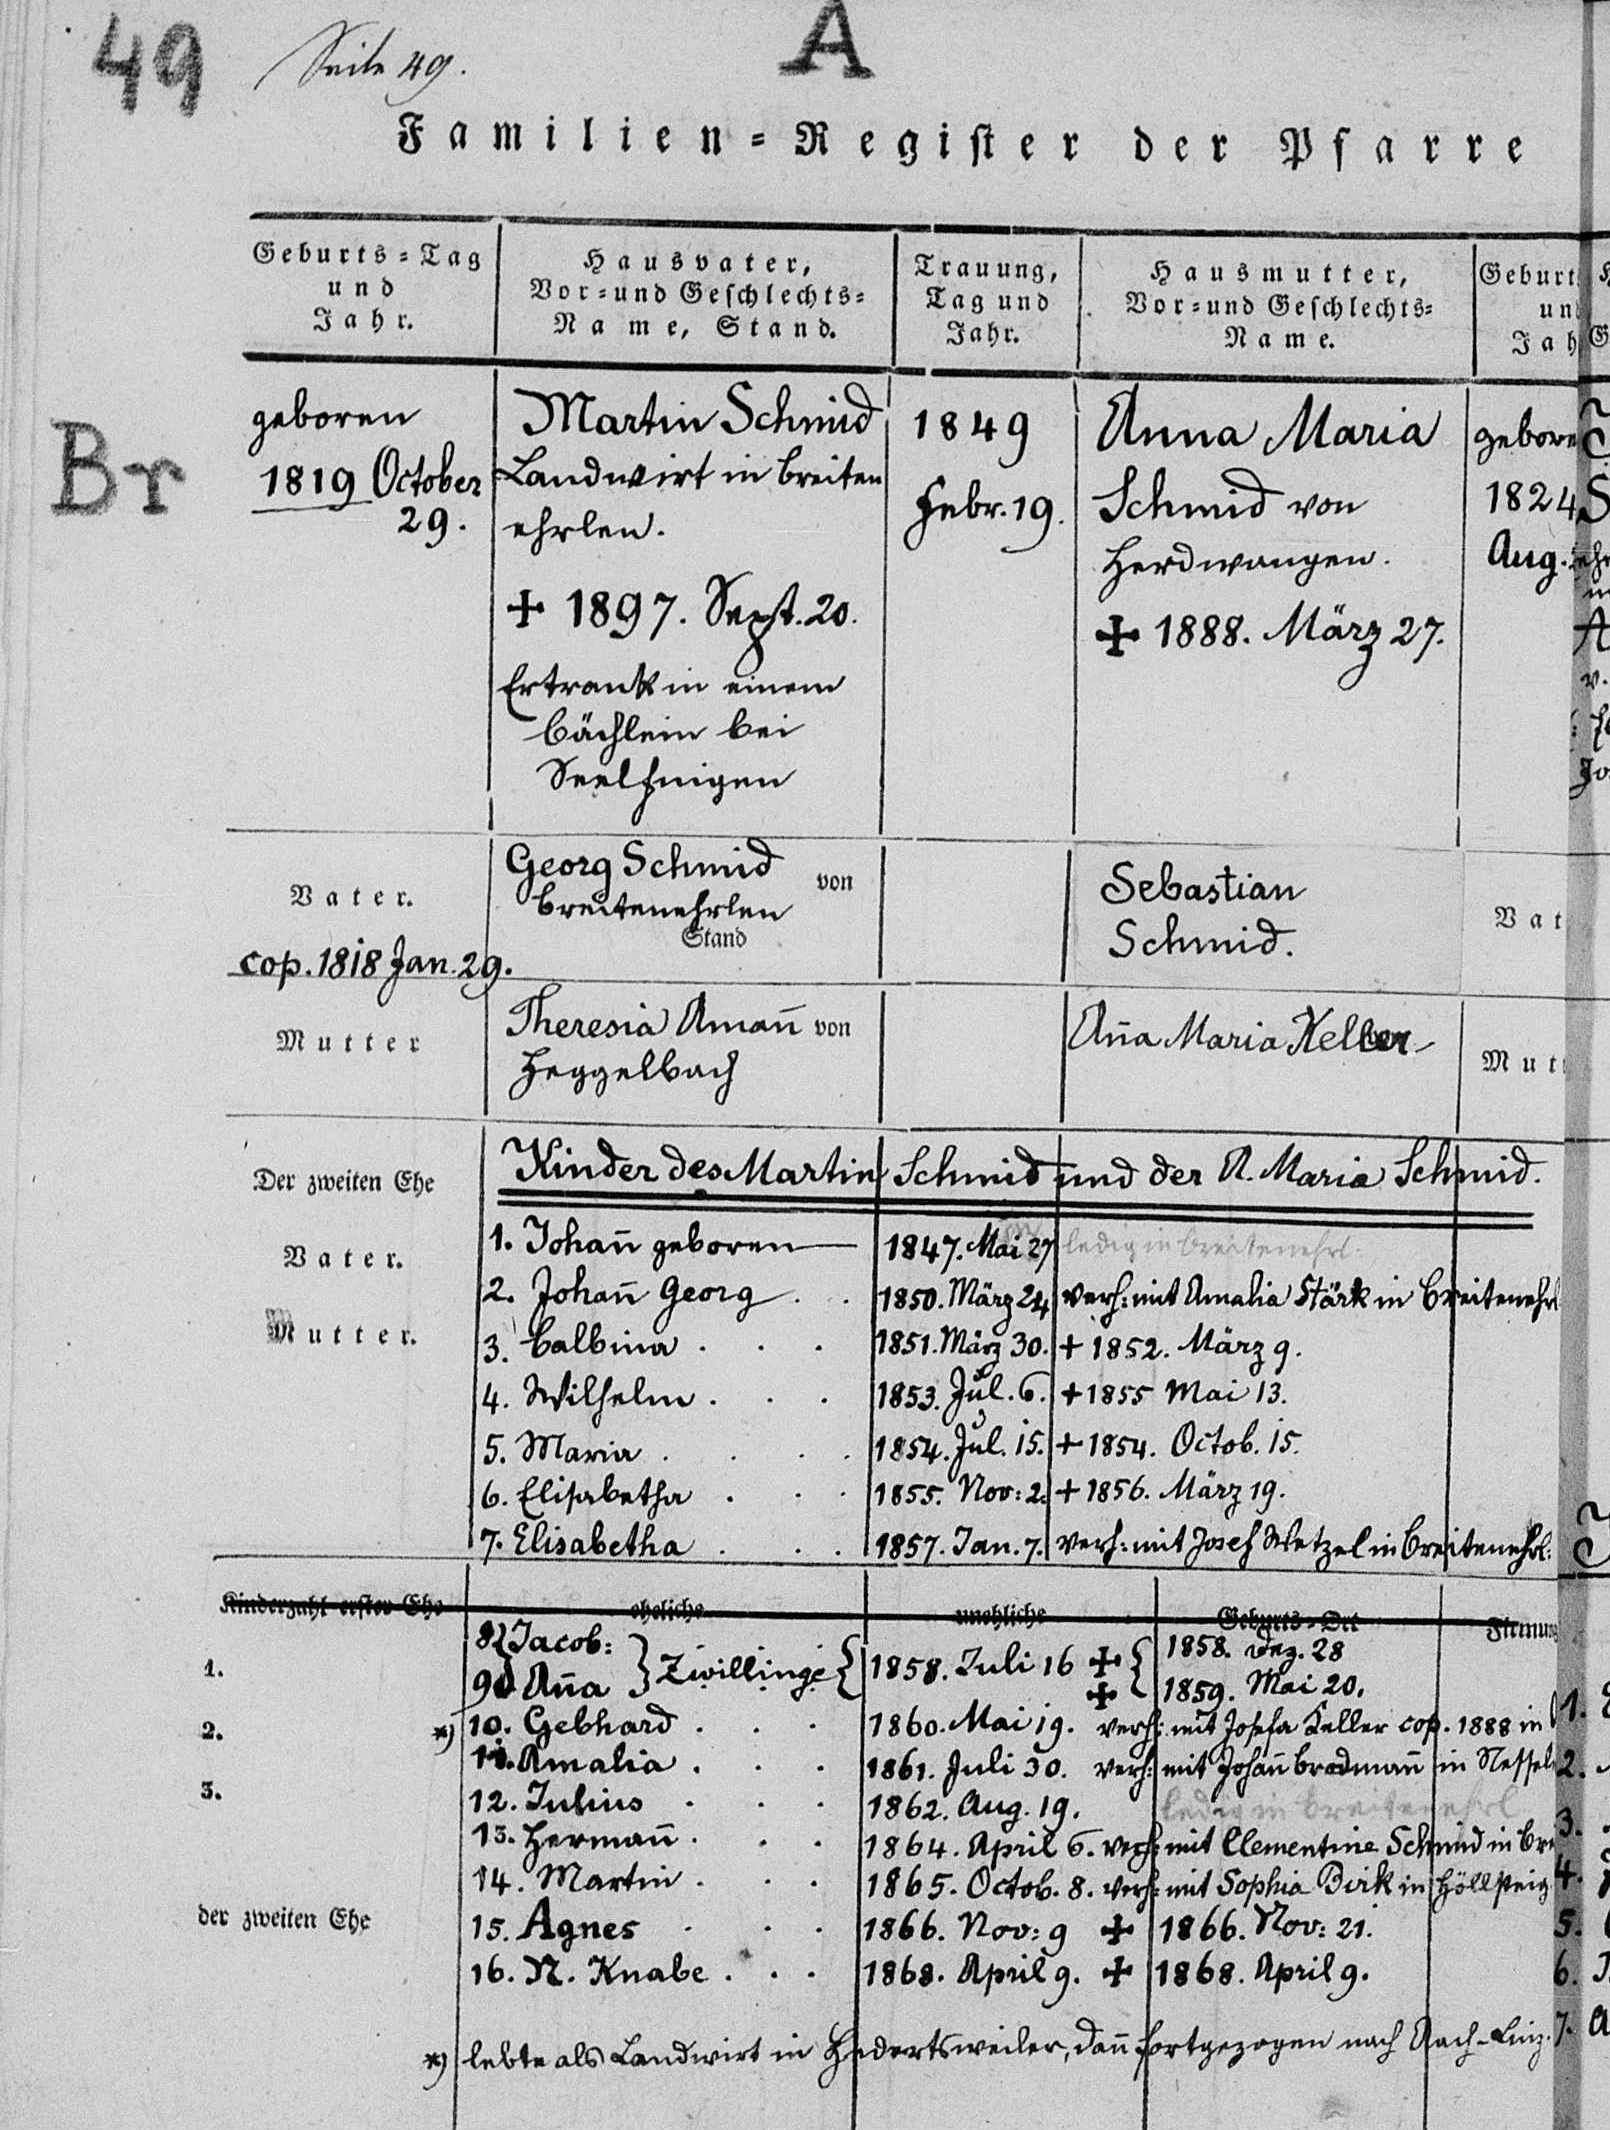 49
Seite 49.
A
Familien=Register der Pfarre
Geburts=Tag und Jahr.
Hausvater, Vor=und Geschlechts=Name, Stand.
Trauung, Tag und Jahr.
Hausmutter, Vor=und Geschlechts=Name.
Geburt
un
Jah
Br
geboren
1819 October
29.
Martin Schmid
Landwirt in Breiten
ehrlen.
+ 1897. Sept. 20.
Ertrank in einem
Bächlein bei
1849
Febr. 19.
Anna Maria
Schmid von
Herdwangen.
+ 1888. März 27.
gebore
1824
Aug.
Vater.
cop. 1818 Jan. 29.
Georg Schmid von
Breitenehrlen
Stand
Sebastian
Schmid.
Vat
Mutter
Theresia Aman̄ von
Heggelbach
An̄a Maria Keller
Mut
Der zweiten Ehe
Vater.
Mutter.
Kinder des Martin Schmid und der A. Maria Schmid.
1. Johan̄ geboren 1847. Mai 27 ledig in Breitenehrl.
2. Johan̄ Georg . . 1850. März 24 verh: mit Amalia Stärk in Breitenehrl
3. Balbina . . . 1851. März 30. + 1852. März 9.
4. Wilhelm . . . 1853. Jul. 6. + 1855 Mai 13.
5. Maria . . . . 1854. Jul. 15. + 1854. Octob. 15.
6. Elisabetha . . . 1855. Nov: 2. + 1856. März 19.
7. Elisabetha . . . 1857. Jan. 7. verh: mit Josef Wetzel in Breitenehrl:
Kinderzahl erster Ehe eheliche unehliche Geburts=Ort Firmung
1.
8 Jacob: } Zwillinge { 1858. Juli 16 + { 1858. Dez. 28
9 An̄a + 1859. Mai 20.
2.
*) 10. Gebhard . . . 1860. Mai 19. verh: mit Josefa Keller cop. 1888 in
11. Amalia . . . 1861. Juli 30. verh: mit Johan̄ Brodman̄ in Nessel
3.
12. Julius . . . 1862. Aug. 19. ledig in Breitenehrl
13. Herman̄ . . . 1864. April 6. verh: mit Clementine Schmid in Bre
14. Martin . . . 1865. Octob. 8. verh: mit Sophia Birk in Höllsteig
der zweiten Ehe
15. Agnes . . . 1866. Nov: 9 + 1866. Nov: 21.
16. N. Knabe . . . 1868. April 9. + 1868. April 9.
*) lebte als Landwirt in dan̄ fortgezogen nach Aach-Linz.
1.
2.
3.
4.
5.
6.
7.